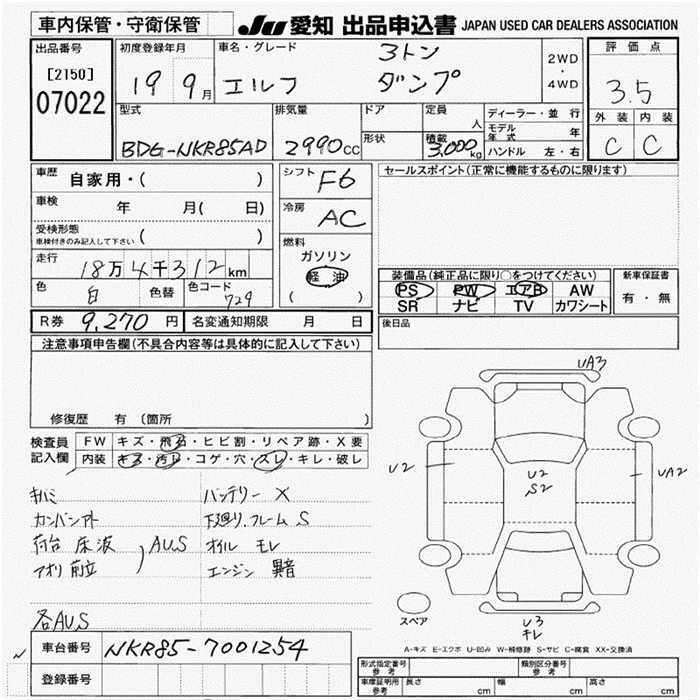 車内保管・守衛保管 JU 愛知 出品申込書 JAPAN USED CAR DEALERS ASSOCIATION
出品番号 初度登録年月 車名・グレード 3トン 2WD・4WD 評価点
[2150] 19年 9月 エルフ ダンプ 3.5
07022
型式 排気量 ドア 定員 人 ディーラー・並行 外装 内装
モデル年式 年
BDG-NKR85AD 2990cc 形状 積載 3,000kg ハンドル 左・右 C C
車歴 自家用・( ) シフト F6 セールスポイント(正常に機能するものに限ります)
車検 年 月( 日) 冷房 AC
受検形態 ( )
車検付きのみ記入して下さい
燃料
走行 18万4千312km ガソリン
軽油
( )
装備品(純正品に限り○をつけてください) 新車保証書
色 白 色替 色コード 729 PS PW エアB AW 有・無
SR ナビ TV カワシート
R券 9,270円 名変通知期限 月 日 後日品
注意事項申告欄(不具合内容等は具体的に記入して下さい)
修復歴 有(箇所 )
検査員記入欄 FW キズ・飛石・ヒビ割・リペア跡・X要
内装 キズ・汚れ・コゲ・穴・スレ・キレ・破レ
UA3
U2 U2 UA2
S2
キハミ バッテリー X
カンバン外 下廻り、フレーム S
荷台 床波 AU.S オイル モレ
アオリ 前立 エンジン 異音
各AU.S
スペア U3
キレ
A-キズ E-エクボ U-凹み W-補修跡 S-サビ C-腐食 XX-交換済
車台番号 NKR85-7001254
形式指定番号 参考 類別区分番号 参考
登録番号 車庫証明用 参考 長さ cm 幅 cm 高さ cm